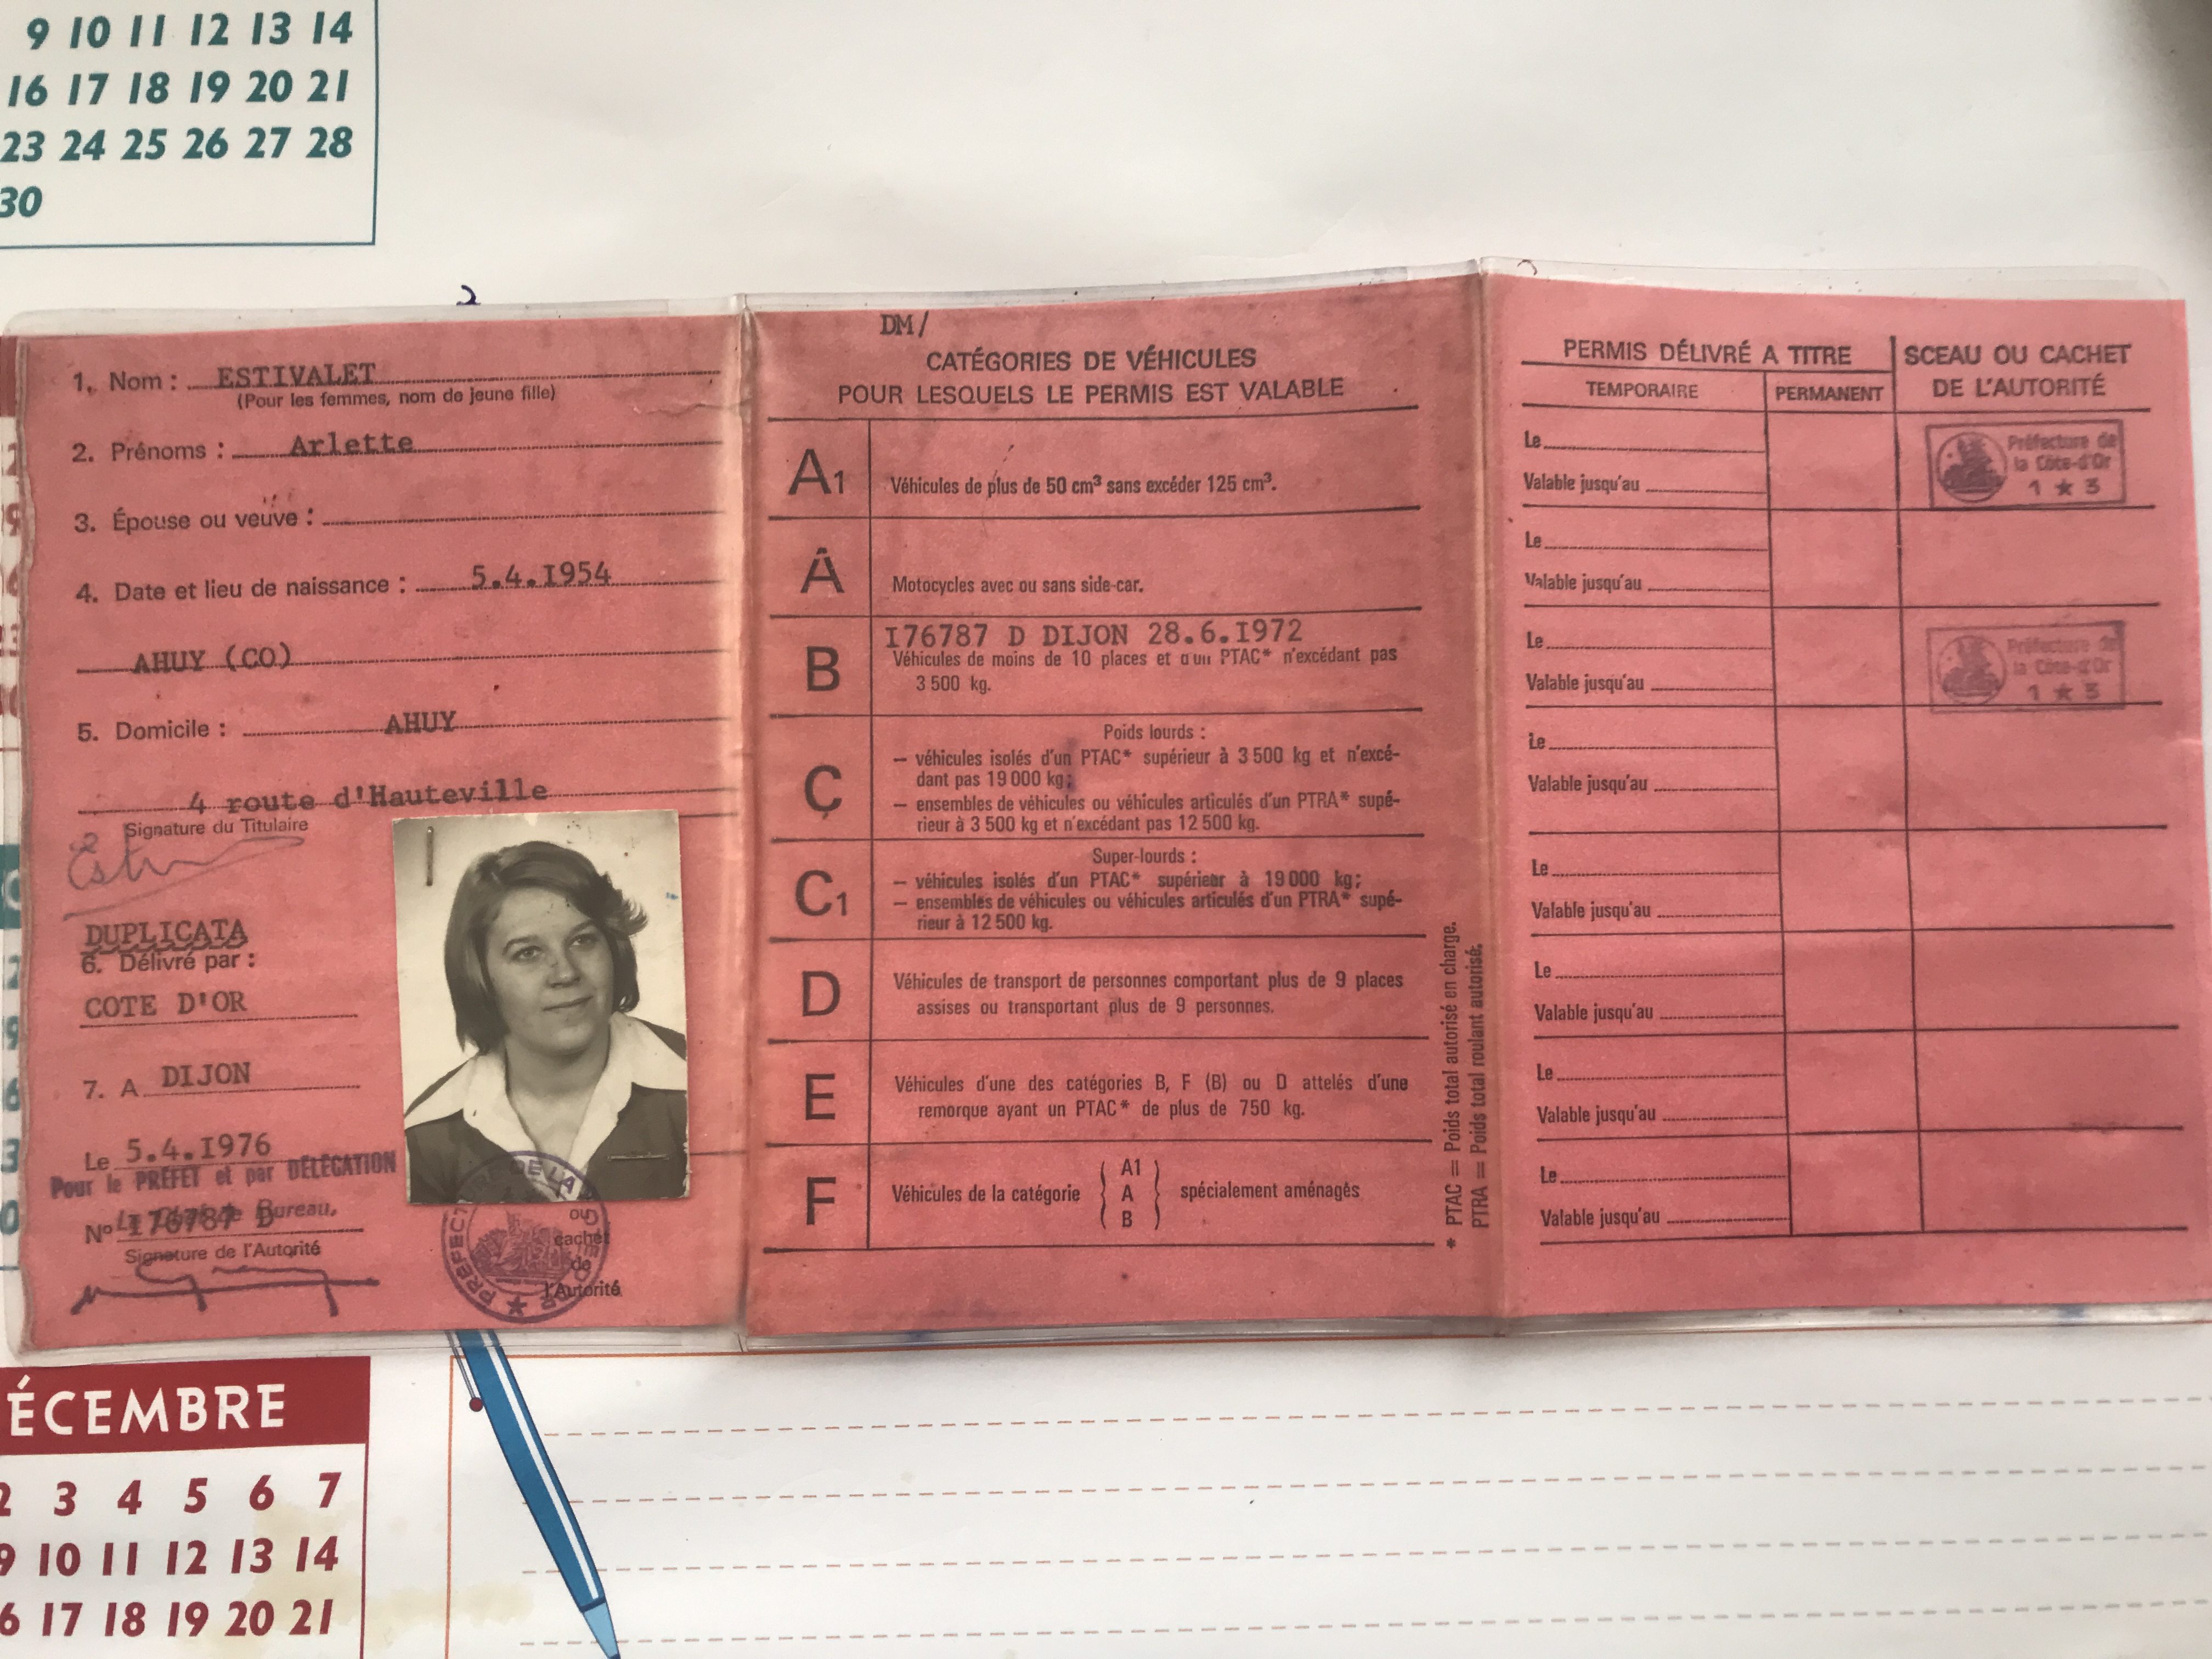 9 10 11 12 13 14
16 17 18 19 20 21
23 24 25 26 27 28
30
1. Nom : ESTIVALET
(Pour les femmes, nom de jeune fille)
2. Prénoms : Arlette
3. Épouse ou veuve :
4. Date et lieu de naissance : 5.4.I954
AHUY (CO)
5. Domicile : AHUY
4 route d'Hauteville
Signature du Titulaire
DUPLICATA
6. Délivré par :
COTE D'OR
7. A DIJON
Le 5.4.I976
Pour le PRÉFET et par DÉLÉGATION
Bureau,
No I76787 D
Signature de l'Autorité
ou
cachet
de
l'Autorité
DM/
CATÉGORIES DE VÉHICULES
POUR LESQUELS LE PERMIS EST VALABLE
A1 Véhicules de plus de 50 cm³ sans excéder 125 cm³.
A Motocycles avec ou sans side-car.
I76787 D DIJON 28.6.I972
B Véhicules de moins de 10 places et d'un PTAC* n'excédant pas
3 500 kg.
C Poids lourds :
— véhicules isolés d'un PTAC* supérieur à 3 500 kg et n'excé-
dant pas 19 000 kg;
— ensembles de véhicules ou véhicules articulés d'un PTRA* supé-
rieur à 3 500 kg et n'excédant pas 12 500 kg.
C1 Super-lourds :
— véhicules isolés d'un PTAC* supérieur à 19 000 kg;
— ensembles de véhicules ou véhicules articulés d'un PTRA* supé-
rieur à 12 500 kg.
D Véhicules de transport de personnes comportant plus de 9 places
assises ou transportant plus de 9 personnes.
E Véhicules d'une des catégories B, F (B) ou D attelés d'une
remorque ayant un PTAC* de plus de 750 kg.
F Véhicules de la catégorie A1 A B spécialement aménagés
* PTAC = Poids total autorisé en charge.
PTRA = Poids total roulant autorisé.
PERMIS DÉLIVRÉ A TITRE
TEMPORAIRE PERMANENT
SCEAU OU CACHET
DE L'AUTORITÉ
Le
Valable jusqu'au
Préfecture de
la Côte-d'Or
1 ★ 3
Le
Valable jusqu'au
Le
Valable jusqu'au
Préfecture de
la Côte-d'Or
1 ★ 3
Le
Valable jusqu'au
Le
Valable jusqu'au
Le
Valable jusqu'au
Le
Valable jusqu'au
Le
Valable jusqu'au
ÉCEMBRE
2 3 4 5 6 7
9 10 11 12 13 14
6 17 18 19 20 21